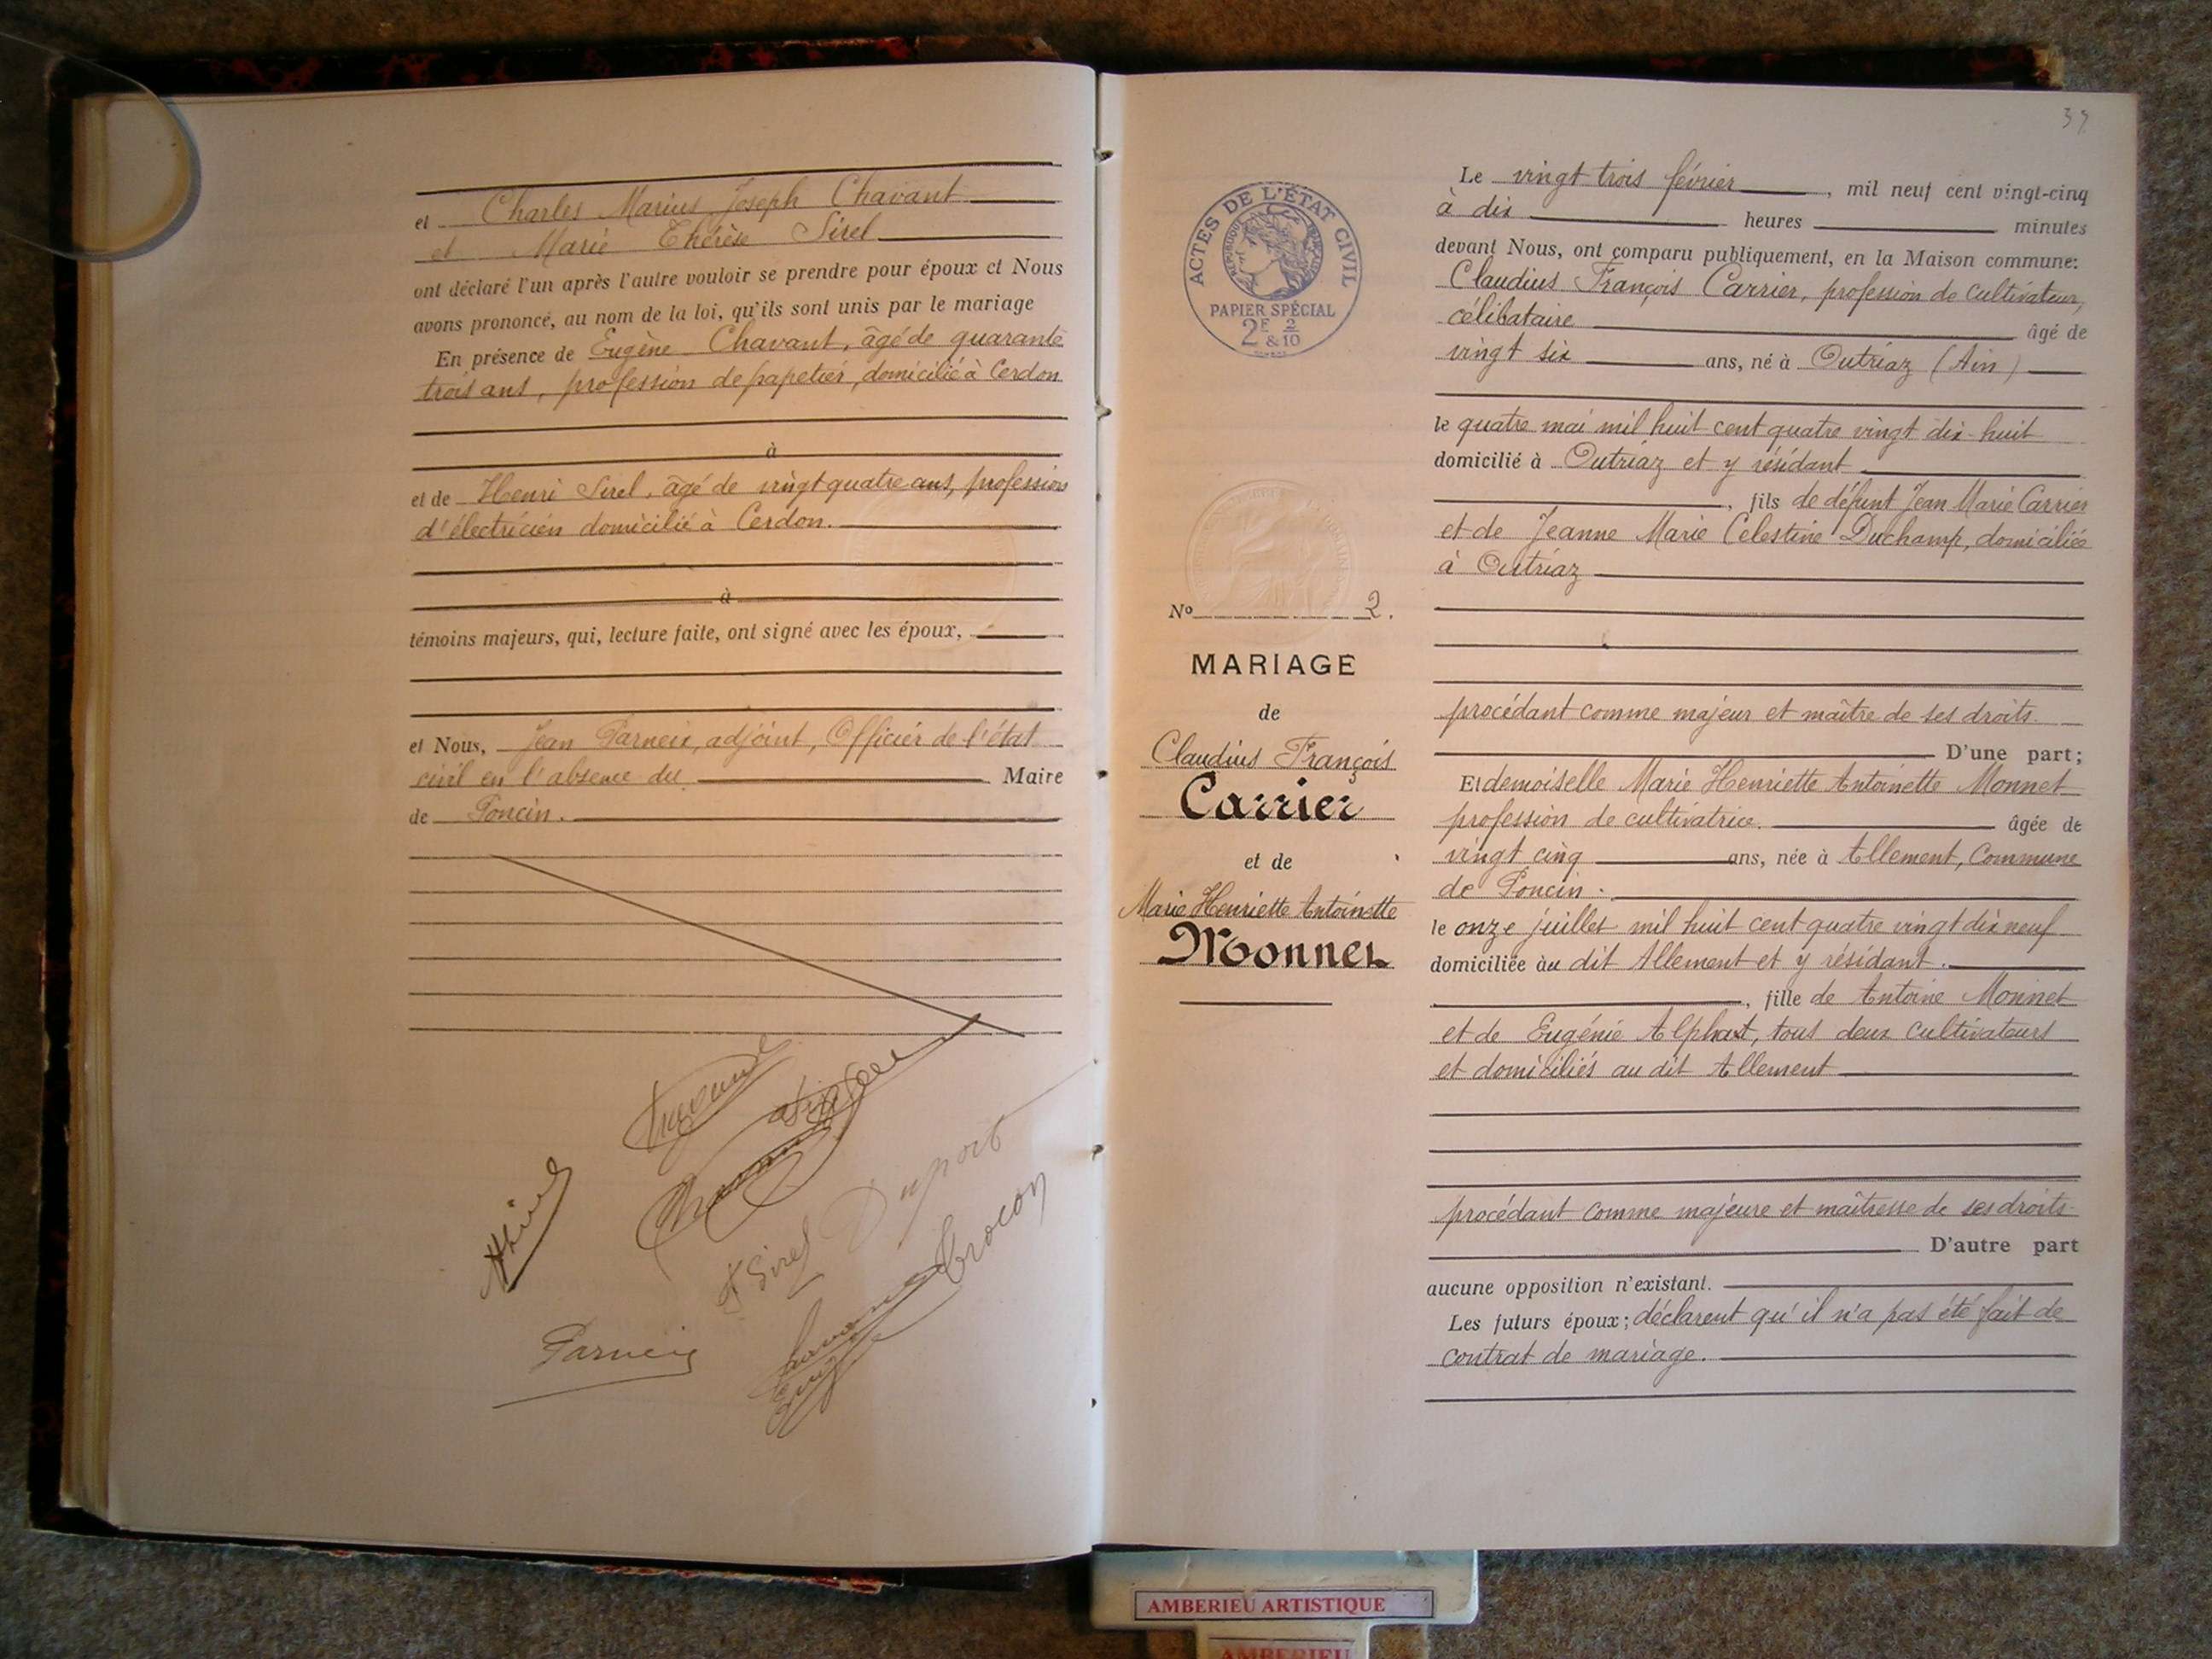 et Charles Marius Joseph Chavant
et Marie Thérèse Sirel
ont déclaré l'un après l'autre vouloir se prendre pour époux et Nous
avons prononcé, au nom de la loi, qu'ils sont unis par le mariage
En présence de Eugène Chavant, âgé de quarante
trois ans, profession de papetier, domicilié à Cerdon
à
et de Henri Sirel, âgé de vingt quatre ans, profession
d'électricien domicilié à Cerdon.
à
témoins majeurs, qui, lecture faite, ont signé avec les époux,
et Nous, Jean Parneix, adjoint, Officier de l'état
civil en l'absence du Maire
de Poncin.
Dupont
H Sirel
Trocon
Parneix
ACTES DE L'ÉTAT CIVIL
PAPIER SPÉCIAL
2F 2/10
&
No 2.
MARIAGE
de
Claudius François
Carrier
et de
Marie Henriette Antoinette
Monnet
Le vingt trois février, mil neuf cent vingt-cinq
à dix heures minutes
devant Nous, ont comparu publiquement, en la Maison commune:
Claudius François Carrier, profession de cultivateur,
célibataire âgé de
vingt six ans, né à Outriaz (Ain)
le quatre mai mil huit cent quatre vingt dix-huit
domicilié à Outriaz et y résidant
, fils de défunt Jean Marie Carrier
et de Jeanne Marie Célestine Duchamp, domiciliée
à Outriaz
procédant comme majeur et maître de ses droits.
D'une part;
Et demoiselle Marie Henriette Antoinette Monnet
profession de cultivatrice. âgée de
vingt cinq ans, née à Allement, Commune
de Poncin.
le onze juillet mil huit cent quatre vingt dix neuf
domiciliée au dit Allement et y résidant.
, fille de Antoine Monnet
et de Eugénie Alphant, tous deux cultivateurs
et domiciliés au dit Allement
procédant comme majeure et maîtresse de ses droits
D'autre part
aucune opposition n'existant.
Les futurs époux; déclarent qu'il n'a pas été fait de
contrat de mariage.
AMBERIEU ARTISTIQUE
AMBERIEU